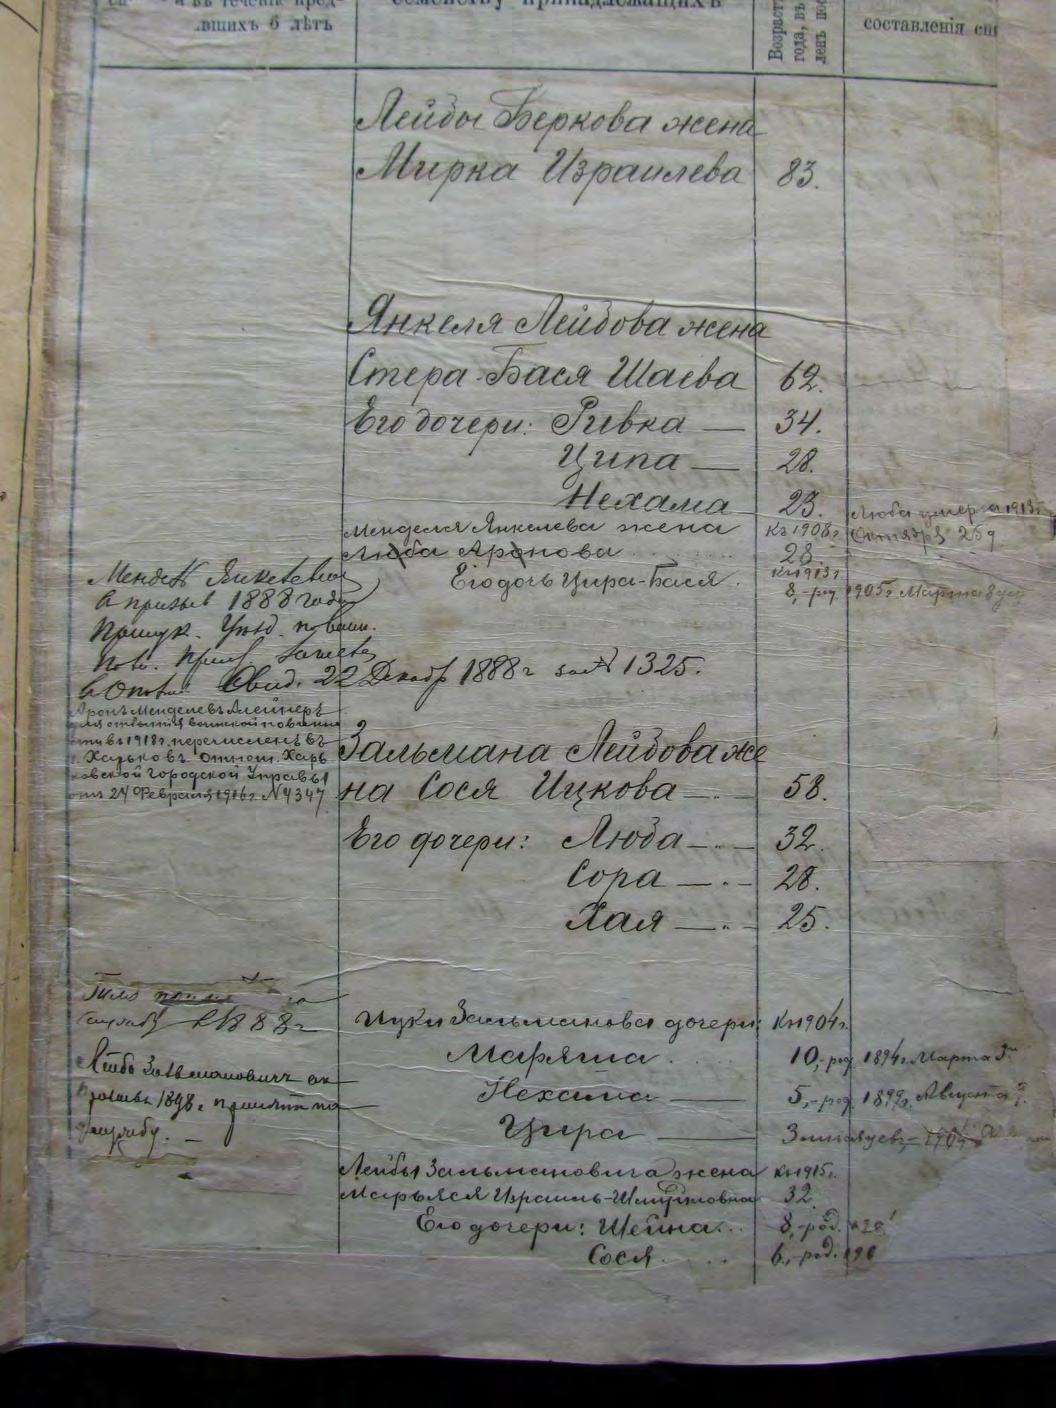 и въ теченіе пред-
вшихъ 6 лѣтъ
семейству принадлежащихъ
Возрастъ
года, въ
ленъ пос
составленія спи
Лейбы Беркова жена
Мирка Израилева 83.
Янкеля Лейбова жена
Стера-Бася Шаева 62.
Его дочери: Ривка — 34.
Ципа — 28.
Нехама 23.
Люба умерла 1913г.
Октября 25 д.
Менделя Янкелева жена къ 1908г.
Люба Аронова 28.
Его дочь Цира-Бася. къ 1913г.
8,-род. 1905г. Марта 8
Мендель Янкелевъ
въ призыв 1888 года
Свид. 22 Декабр 1888г за № 1325.
Аронъ Менделевъ Алейнеръ
для отбытія воинской повинно
сти въ 1918г. перечисленъ въ
г. Харьковъ отнош. Харь
ковской Городской Управы
отъ 24 Февраля 1916г. № 4347
Зальмана Лейбова же
на Сося Ицкова — 58.
Его дочери: Люба — 32.
Сора — 28.
Хая — 25.
службу 1888г
Ицки Зальманова дочери: къ 1904г.
Маряша 10,-род. 1894г. Марта
Нехама — 5,-род. 1899г. Августа
Цира —
Лейба Зальмановичъ въ
призывъ 1898г принятъ на
службу. —
Лейбы Зальмановича жена къ 1915г.
Марьяся Израиль-Шмуйловна 32.
Его дочери: Шейна... 8,-род.
Сося..... 6,-род.